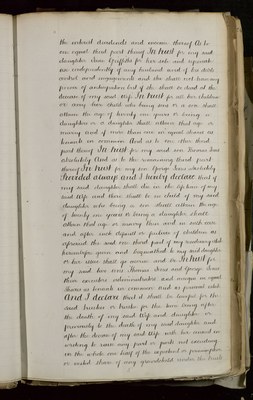 the natural dividends and income thereof As to
one equal third part thereof In trust for my said
daughter Ann Griffiths for her sole and separate
use independently of any husband and of his debts
control and engagements and she shall not have any
power of anticipation but if she shall be dead at the
decease of my said Wife In trust for all her children
or any her child who being sons or a son shall
attain the age of twenty one years or being
daughters or a daughter shall attain that age or
marry and if more than one in equal shares as
tenants in common And as to one other third
part thereof In trust for my said son Thomas
absolutely And as to the remaining third part
thereof In trust for my son George absolutely
Provided always and I hereby declare that if
my said daughter shall die in the lifetime of my
said Wife and there shall be no child of my said
daughter who being a son shall attain the age
of twenty one years or being a daughter shall
attain that age or marry then and in such case
and after such default or failure of children as
aforesaid the said one third part of my
hereinbefore given and bequeathed to my said daughter
or her issue shall go accrue and be In trust for
my said two sons Thomas and George
their executors administrators and assigns in equal
shares as tenants in common And as personal estate
And I declare that it shall be lawful for the
said trustees or trustee for the time being after
the death of my said Wife and daughter or
previously to the death of my said daughter and
after the decease of my said Wife with her consent in
writing to raise any part or parts not exceeding
in the whole one half of the expectant or presumptive
or vested share of any grandchild under the trusts